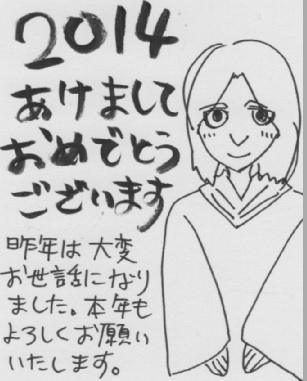 2014
あけまして
おめでとう
ございます
昨年は大変
お世話になり
ました。本年も
よろしくお願い
いたします。